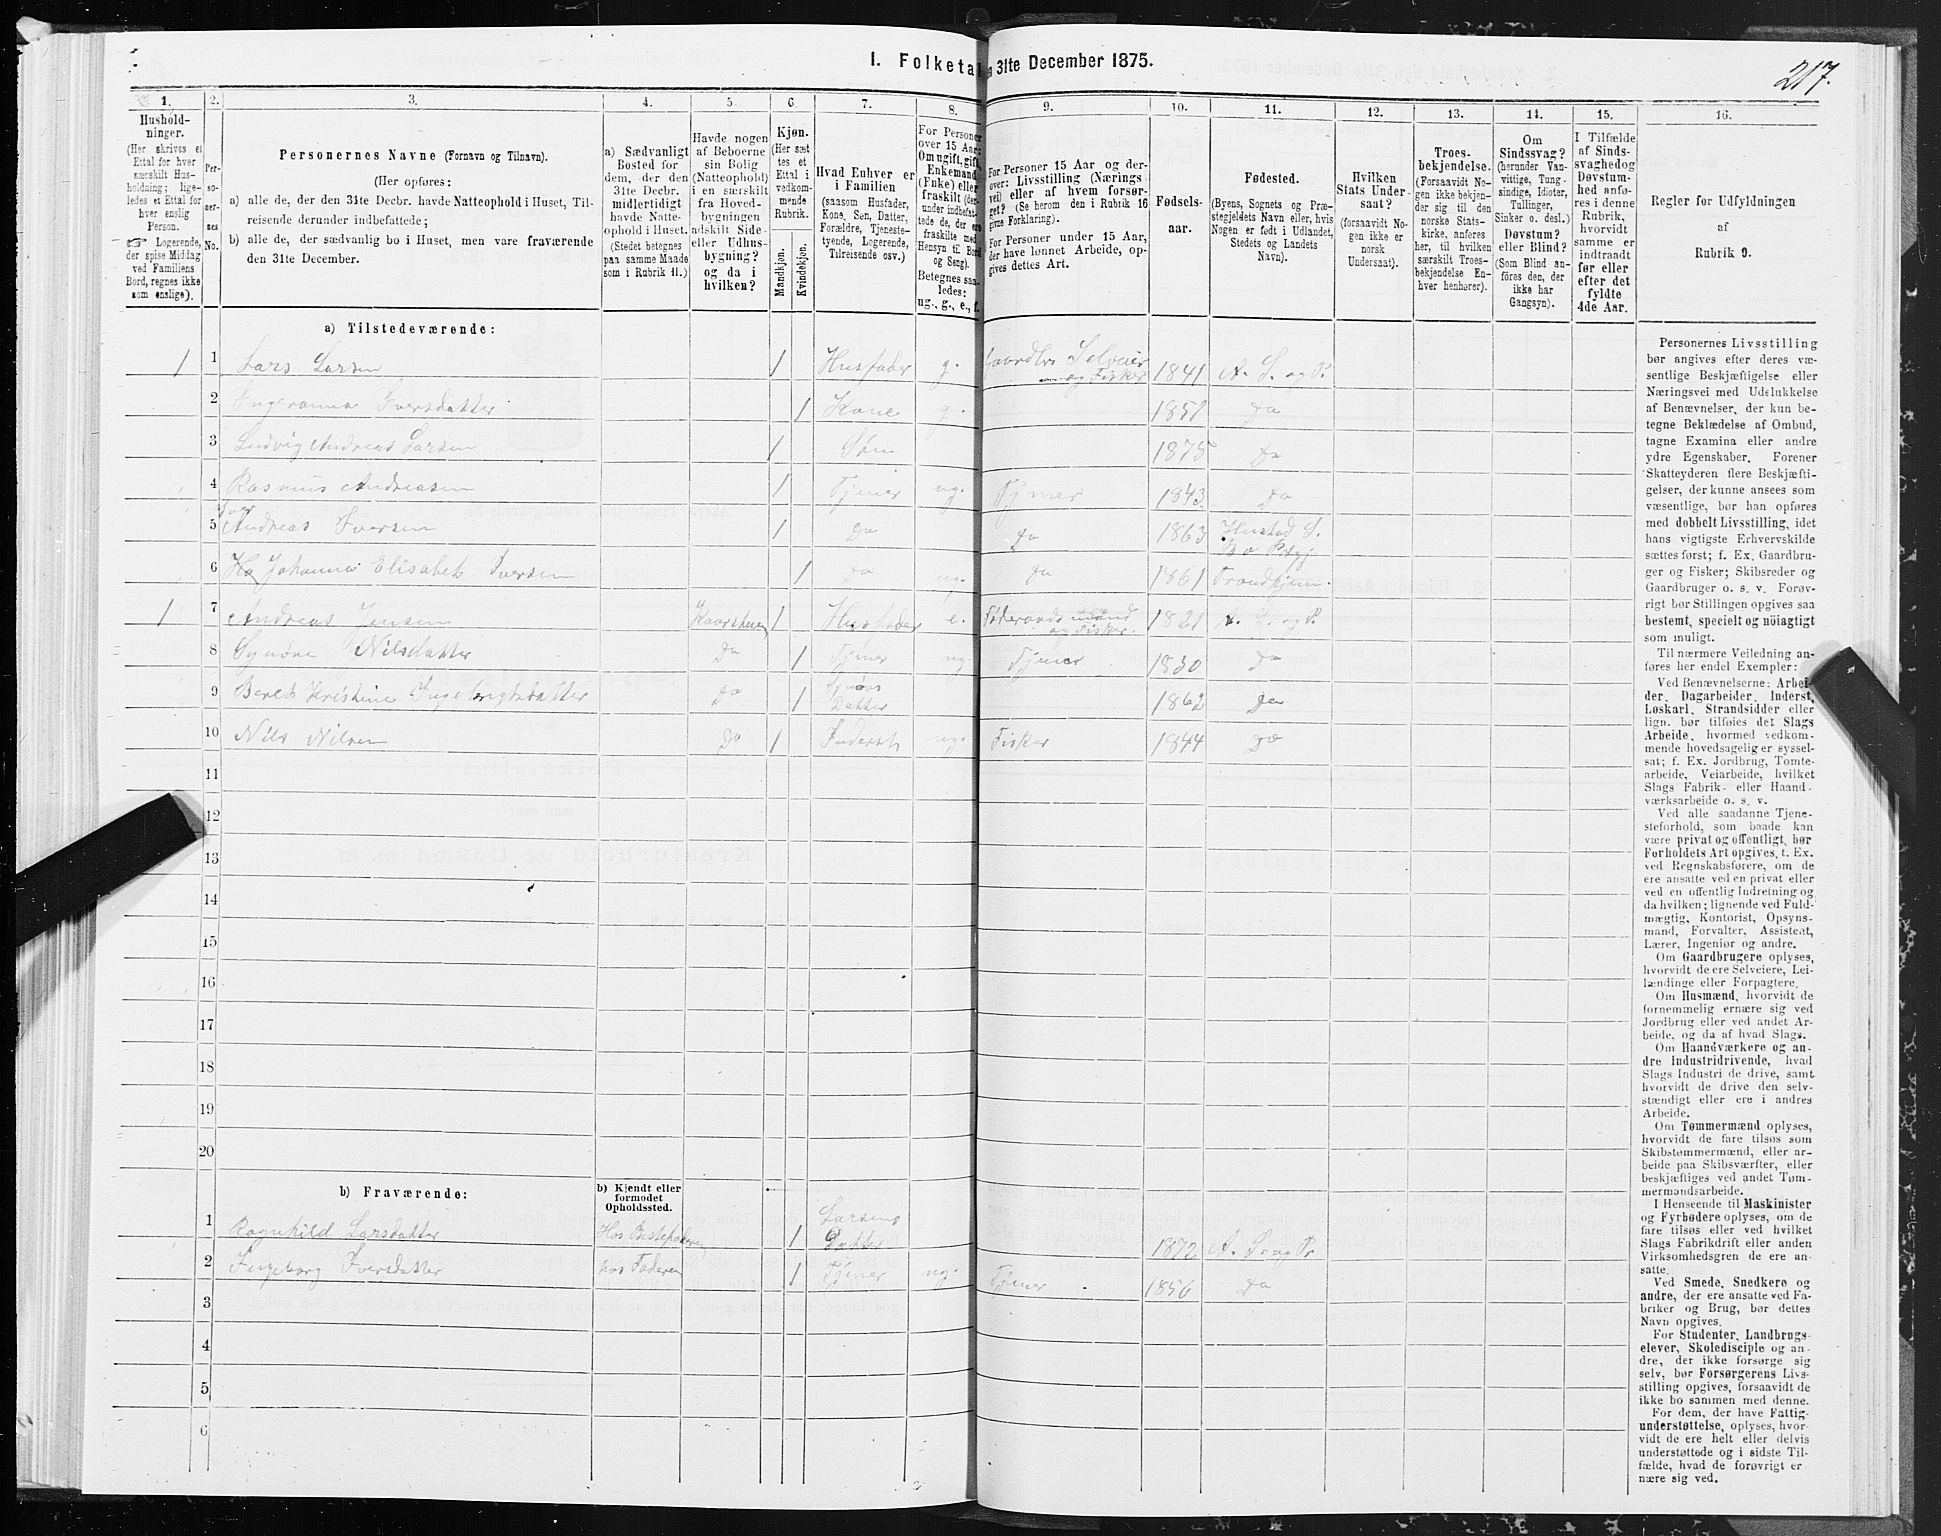 I. Folketal
n 31te December 1875.
217.
1.
2.
3.
4.
5.
6.
7.
8.
9.
10.
11.
12.
13.
14.
15.
16.
Hushold-
ninger.
(Her skrives et
Ettal for hver
særskilt Hus-
holdning; lige-
ledes et Ettal for
hver enslig
Person.
☞ Logerende,
der spise Middag
ved Familiens
Bord, regnes ikke
som enslige).
Per-
so-
ner-
nes
No.
Personernes Navne (Fornavn og Tilnavn).
(Her opføres:
a) alle de, der den 31te Decbr. havde Natteophold i Huset, Til-
reisende derunder indbefattede;
b) alle de, der sædvanlig bo i Huset, men vare fraværende
den 31te December.
a) Sædvanligt
Bosted for
dem, der den
31te Decbr.
midlertidigt
havde Natte-
ophold i Huset.
(Stedet betegnes
paa samme Maade
som i Rubrik 11.)
Havde nogen
af Beboerne
sin Bolig
(Natteophold)
i en særskilt
fra Hoved-
bygningen
adskilt Side-
eller Udhus-
bygning?
og da i
hvilken?
Kjøn.
(Her sæt
tes et
Ettal i
vedkom-
mende
Rubrik.
Mandkjøn.
Kvindekjøn.
Hvad Enhver er
i Familien
(saasom Husfader,
Kone, Søn, Datter,
Forældre, Tjeneste-
tyende, Logerende,
Tilreisende osv.)
For Personer
over 15 Aar:
Om ugift, gift,
Enkemand
(Enke) eller
fraskilt (der-
under indbefat-
tede de, der ere
fraskilte med
Hensyn til Bord
og Seng).
Betegnes saa-
ledes:
ug., g., e., f.
For Personer 15 Aar og der-
over: Livsstilling (Nærings
vei) eller af hvem forsør-
get? (Se herom den i Rubrik 16
givne Forklaring).
For Personer under 15 Aar,
der have lønnet Arbeide, op-
gives dettes Art.
Fødsels-
aar.
Fødested.
(Byens, Sognets og Præ-
stegjeldets Navn eller, hvis
Nogen er født i Udlandet,
Stedets og Landets
Navn).
Hvilken
Stats Under-
saat?
(forsaavidt No-
gen ikke er
norsk
Undersaat).
Troes-
bekjendelse.
(Forsaavidt No-
gen ikke bekjen-
der sig til den
norske Stats-
kirke, anføres
her, til hvilken
særskilt Troes-
bekjendelse En-
hver henhører).
Om
Sindssvag?
(herunder Van-
vittige, Tung-
sindige, Idioter,
Tullinger,
Sinker o. desl.)
Døvstum?
eller Blind?
(Som Blind an-
føres den, der
ikke har
Gangsyn).
I Tilfælde
af Sinds-
svaghed og
Døvstum-
hed anfø-
res i denne
Rubrik,
hvorvidt
samme er
indtraadt
før eller
efter det
fyldte
4de Aar.
Regler for Udfyldningen
af
Rubrik 9.
a) Tilstedeværende:
1 1 Lars Larsen 1 Husfader g. Gaardbr. Selveier og Fisker 1841 A. S. og P.
2 Ingeranna Iversdatter 1 Kone g. 1851 Do
3 Ludvig Andreas Larsen 1 Søn 1875 Do
4 Rasmus Andreasen 1 Tjener ug. Tjener 1843 Do
5 Iver Andreas Iversen 1 Do Do 1863 Hustad S. Bo Prgj.
6 Johanna Elisabet Iversen 1 Do ug. Do 1861 Trondhjem.
1 7 Andreas Jensen 1 Husfader e. Føderaadsmand og Fisker. 1821 A. S. og P.
8 Synøve Nilsdatter Do 1 Tjener ug. Tjener 1830 Do
9 Beret Kristine Ingebrigtsdatter Do 1 Synøvs Datter 1862 Do
10 Nils Nilsen Do 1 Inderst ug. Fisker 1844 Do
11
12
13
14
15
16
17
18
19
20
b) Fraværende:
b) Kjendt eller
formodet
Opholdssted.
1 Ragnhild Larsdatter Hos Bestefaderen 1 Larsens Datter 1872 A. S. og P.
2 Ingeborg Iversdatter hos Faderen 1 Tjener ug. Tjener 1856 Do
3
4
5
6
Personernes Livsstilling
bør angives efter deres væ-
sentlige Beskjæftigelse eller
Næringsvei med Udelukkelse
af Benævnelser, der kun be-
tegne Beklædelse af Ombud,
tagne Examina eller andre
ydre Egenskaber. Forener
Skatteyderen flere Beskjæfti-
gelser, der kunne ansees som
væsentlige, bør han opføres
med dobbelt Livsstilling, idet
hans vigtigste Erhvervskilde
sættes først; f. Ex. Gaardbru-
ger og Fisker; Skibsreder og
Gaardbruger o. s. v. Forøv-
rigt bør Stillingen opgives saa
bestemt, specielt og nöiagtigt
som muligt.
Til nærmere Veiledning an-
føres her endel Exempler:
Ved Benævnelserne: Arbei-
der, Dagarbeider, Inderst,
Løskarl, Strandsidder eller
lign. bør tilføies det Slags
Arbeide, hvormed vedkom-
mende hovedsagelig er syssel-
sat; f. Ex. Jordbrug, Tomte-
arbeide, Veiarbeide, hvilket
Slags Fabrik- eller Haand-
værksarbeide o. s. v.
Ved alle saadanne Tjene-
steforhold, som baade kan
være privat og offentligt, bør
Forholdets Art opgives, t. Ex.
ved Regnskabsførere, om de
ere ansatte ved en privat eller
ved en offentlig Indretning og
da hvilken; lignende ved Fuld-
mægtig, Kontorist, Opsyns-
mand, Forvalter, Assistent,
Lærer, Ingeniør og andre.
Om Gaardbrugere oplyses,
hvorvidt de ere Selveiere, Lei-
lændinge eller Forpagtere.
Om Husmænd, hvorvidt de
fornemmelig ernære sig ved
Jordbrug eller ved andet Ar-
beide, og da af hvad Slags.
Om Haandværkere og an-
dre Industridrivende, hvad
Slags Industri de drive, samt
hvorvidt de drive den selv-
stændigt eller ere i andres
Arbeide.
Om Tømmermænd oplyses,
hvorvidt de fare tilsøs som
Skibstømmermænd, eller ar-
beide paa Skibsværfter, eller
beskjæftiges ved andet Tøm-
mermandsarbeide.
I Henseende til Maskinister
og Fyrbødere oplyses, om de
fare tilsøs eller ved hvilket
Slags Fabrikdrift eller anden
Virksomhedsgren de ere an-
satte.
Ved Smede, Snedkere og
andre, der ere ansatte ved Fa-
briker og Brug, bør dettes
Navn opgives.
For Studenter, Landbrugs-
elever, Skoledisciple og an-
dre, der ikke forsørge sig
selv, bør Forsørgerens Livs-
stilling opgives, forsaavidt de
ikke bo sammen med denne.
For dem, der have Fattig-
understøttelse, oplyses, hvor-
vidt de ere helt eller delvis
understøttede og i sidste Til-
fælde, hvad de forøvrigt er-
nære sig ved.